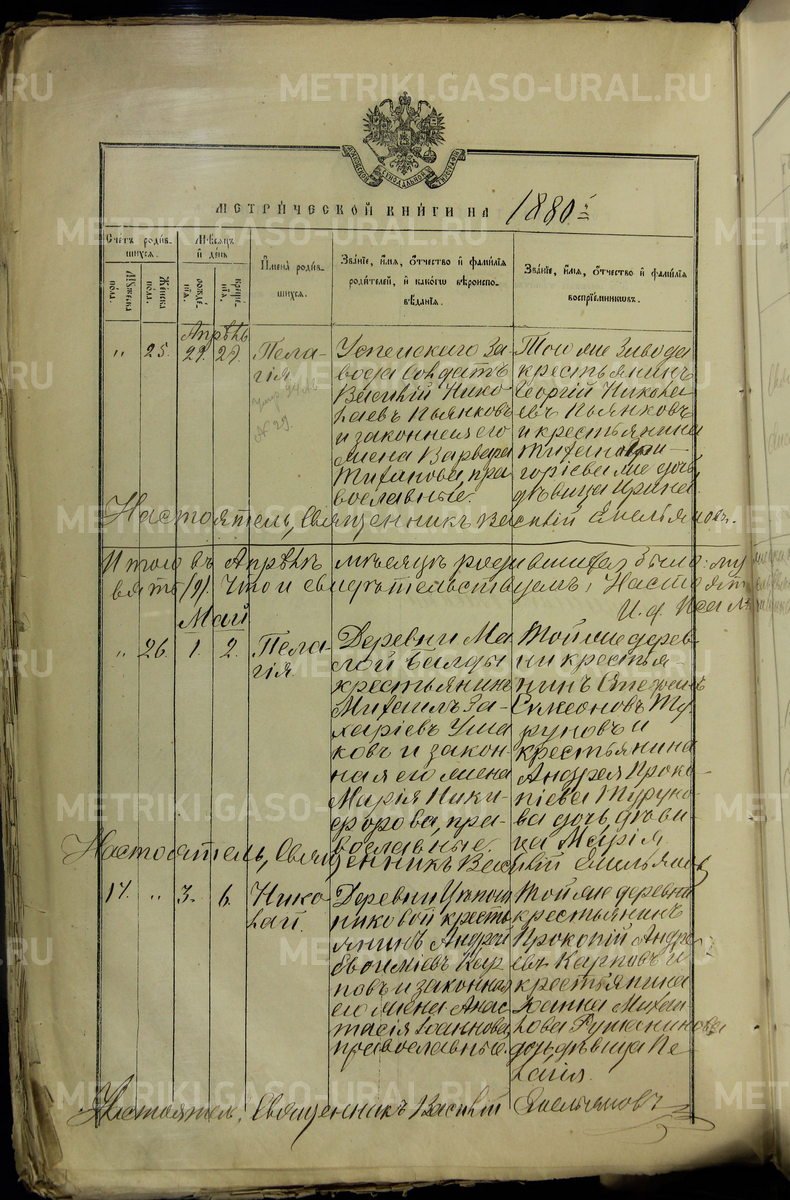 METRIKI.GASO-URAL.RU
МЕТРИ́ЧЕСКОЙ КНИ́ГИ НА 1880 г.
Счетъ роди́вшихся.
Му́жеска пола.
Же́нска пола.
Мѣ́сяцъ и день
рожде́нія.
креще́нія.
И҆мена̀ роди́вшихся.
Зва́ніе, и҆́мя, ѻ҆́тчество и҆ фами́лія роди́телей, и҆ како́гѡ вѣроисповѣ́данія.
Зва́ніе, и҆́мя, ѻ҆́тчество и҆ фами́лія воспрїе́мниковъ.
Апрѣль
" 25. 29. 29.
Пела-
гія
№ 29.
Успенскаго За-
вода солдатъ
Василій Нико-
лаевъ Пьянковъ
и законная его
жена Варвара
Титанова, пра-
вославные.
Того же Завода
крестьянинъ
Георгій Никола-
евъ Пьянковъ
и крестьянина
Титана Гри-
горіева же дочь
дѣвица Ирина.
Настоятель, Священникъ Василій Емельяновъ.
Итого въ Апрѣлѣ мѣсяцѣ родившихся было: му
вять (9). Что и свидѣтельствуемъ: Настоят
И. д. Псал
Май
" 26. 1. 2.
Пела-
гія.
Деревни Ма-
лой Балды
крестьянинъ
Михаилъ За-
харіевъ Уша-
ковъ и закон-
ная его жена
Марія Ники-
форова, пра-
вославные.
Той же дерев-
ни крестья-
нинъ Стефанъ
Симеоновъ Ту-
руновъ и
крестьянина
Андрея Проко-
піева Туруно-
ва дочь, дѣви-
ца Марія
Настоятель, Священникъ Василій Емельяновъ
17. " 3. 6.
Нико-
лай.
Деревни
никовой кресть-
янинъ Андрей
Евфиміевъ Кар-
повъ и законная
его жена Анас-
тасія Іоаннова,
православные.
Той же деревни
крестьянинъ
Прокопій Андре-
евъ Карповъ и
крестьянина
Іоанна Михаи-
лова
дочь, дѣвица Пе-
лагія.
Настоятель, Священникъ Василій Емельяновъ